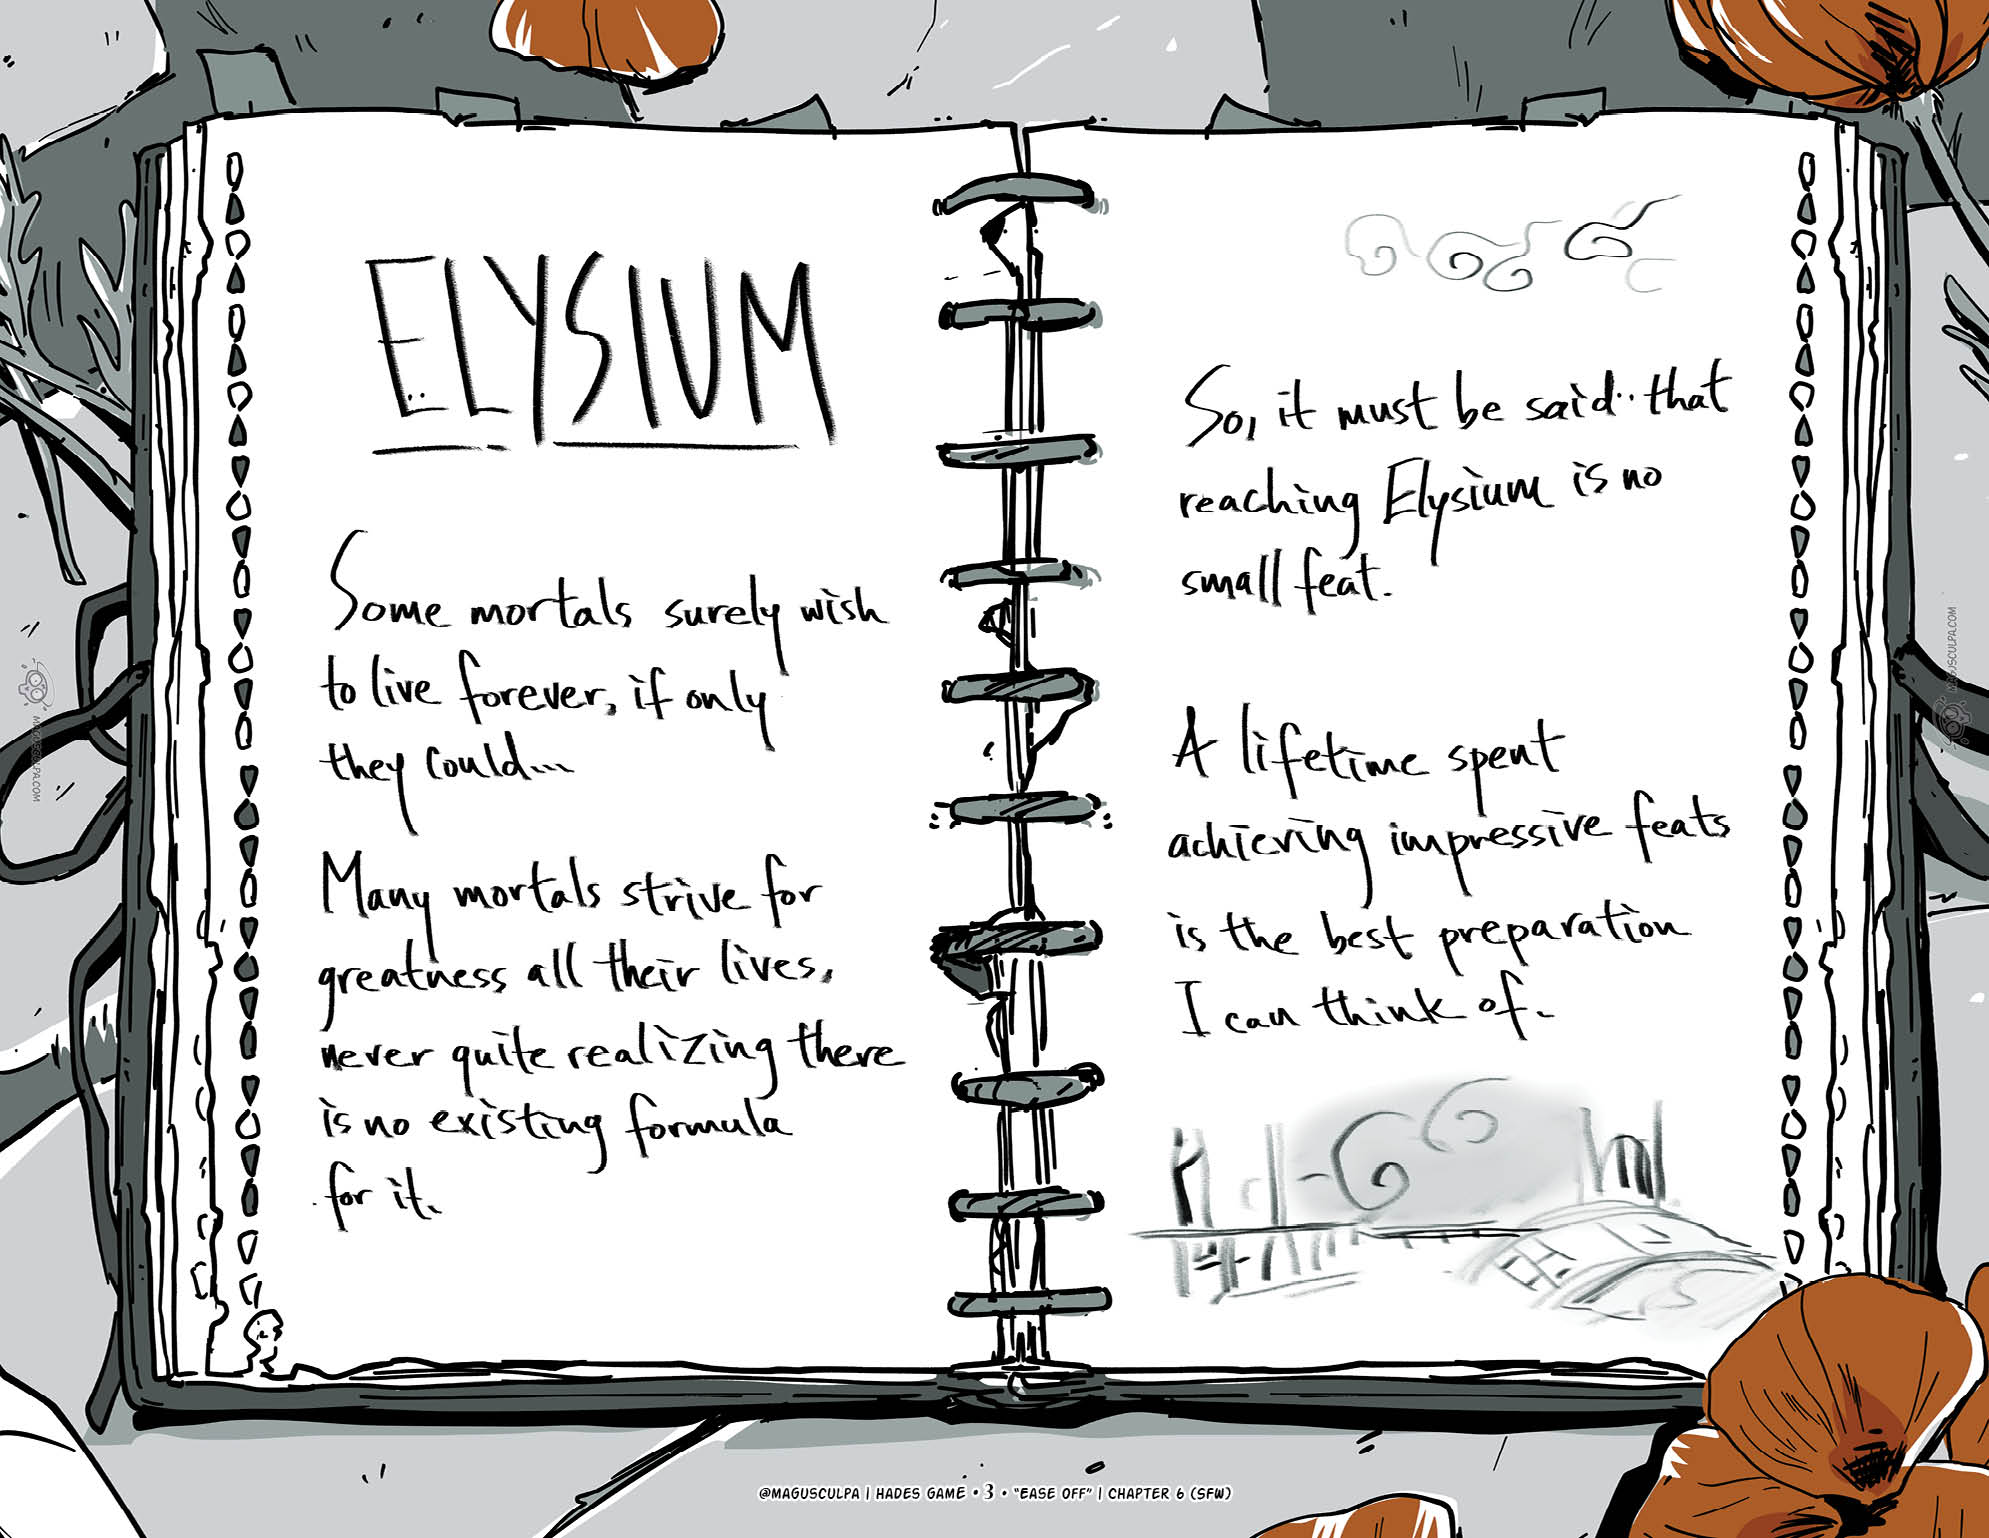 ELYSIUM
Some mortals surely wish
to live forever, if only
they could...
Many mortals strive for
greatness all their lives,
never quite realizing there
is no existing formula
for it.
So, it must be said.. that
reaching Elysium is no
small feat.
A lifetime spent
achieving impressive feats
is the best preparation
I can think of.
MAGUSCULPA.COM
MAGUSCULPA.COM
@MAGUSCULPA | HADES GAME • 3 • "EASE OFF" | CHAPTER 6 (SFW)